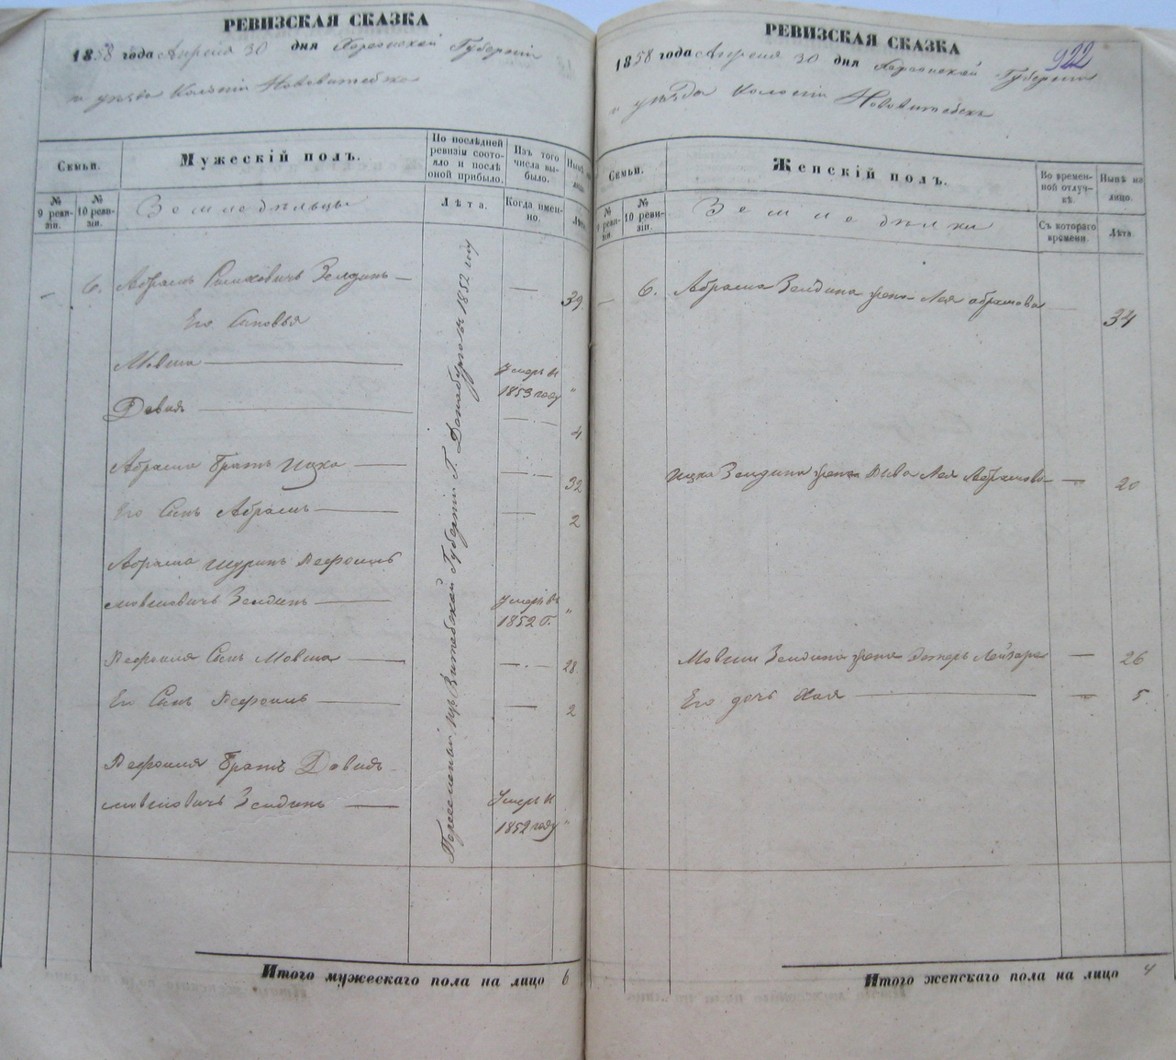 РЕВИЗСКАЯ СКАЗКА
1858 года Апреля 30 дня Херсонской Губернии
и уѣзда Колонии Нововитебска
Семьи.
№ 9 ревизіи.
№ 10 ревизіи.
Мужескій полъ.
Земледѣльцы
По послѣдней ревизіи состояло и послѣ оной прибыло.
Лѣта.
Изъ того числа выбыло.
Когда именно.
Нынѣ на лицо.
Лѣта.
— 6. Абрамъ Зелдинъ — — 39
Его Сыновья
Мовша — Умеръ въ 1853 году "
Давид — — 4
Абрама братъ Ицка — — 32
Его Сынъ Абрамъ — — 2
Абрама шуринъ
Мовшовичъ Зелдинъ — Умеръ въ 1852 г. "
Сынъ Мовша — — 28
Его Сынъ — — 2
братъ Давидъ
Мовшовичъ Зелдинъ — Умеръ въ 1852 году "
Переселены изъ Витебской Губернии Г. Динабурга въ 1852 году
Итого мужескаго пола на лицо 6
РЕВИЗСКАЯ СКАЗКА
922
1858 года Апреля 30 дня Херсонской Губернии
и уѣзда Колонии Нововитебск
Семьи.
№ 9 ревизіи.
№ 10 ревизіи.
Женскій полъ.
Земледѣлки
Во временной отлучкѣ.
Съ котораго времени.
Нынѣ на лицо.
Лѣта.
— 6. Абрама Зелдина жена Лея Абрамова — 34
Ицки Зелдина жена Рива Лея Абрамова — 20
Мовши Зелдина жена Эстерь Лейзера — 26
Его дочь Хая — 5
Итого женскаго пола на лицо 4